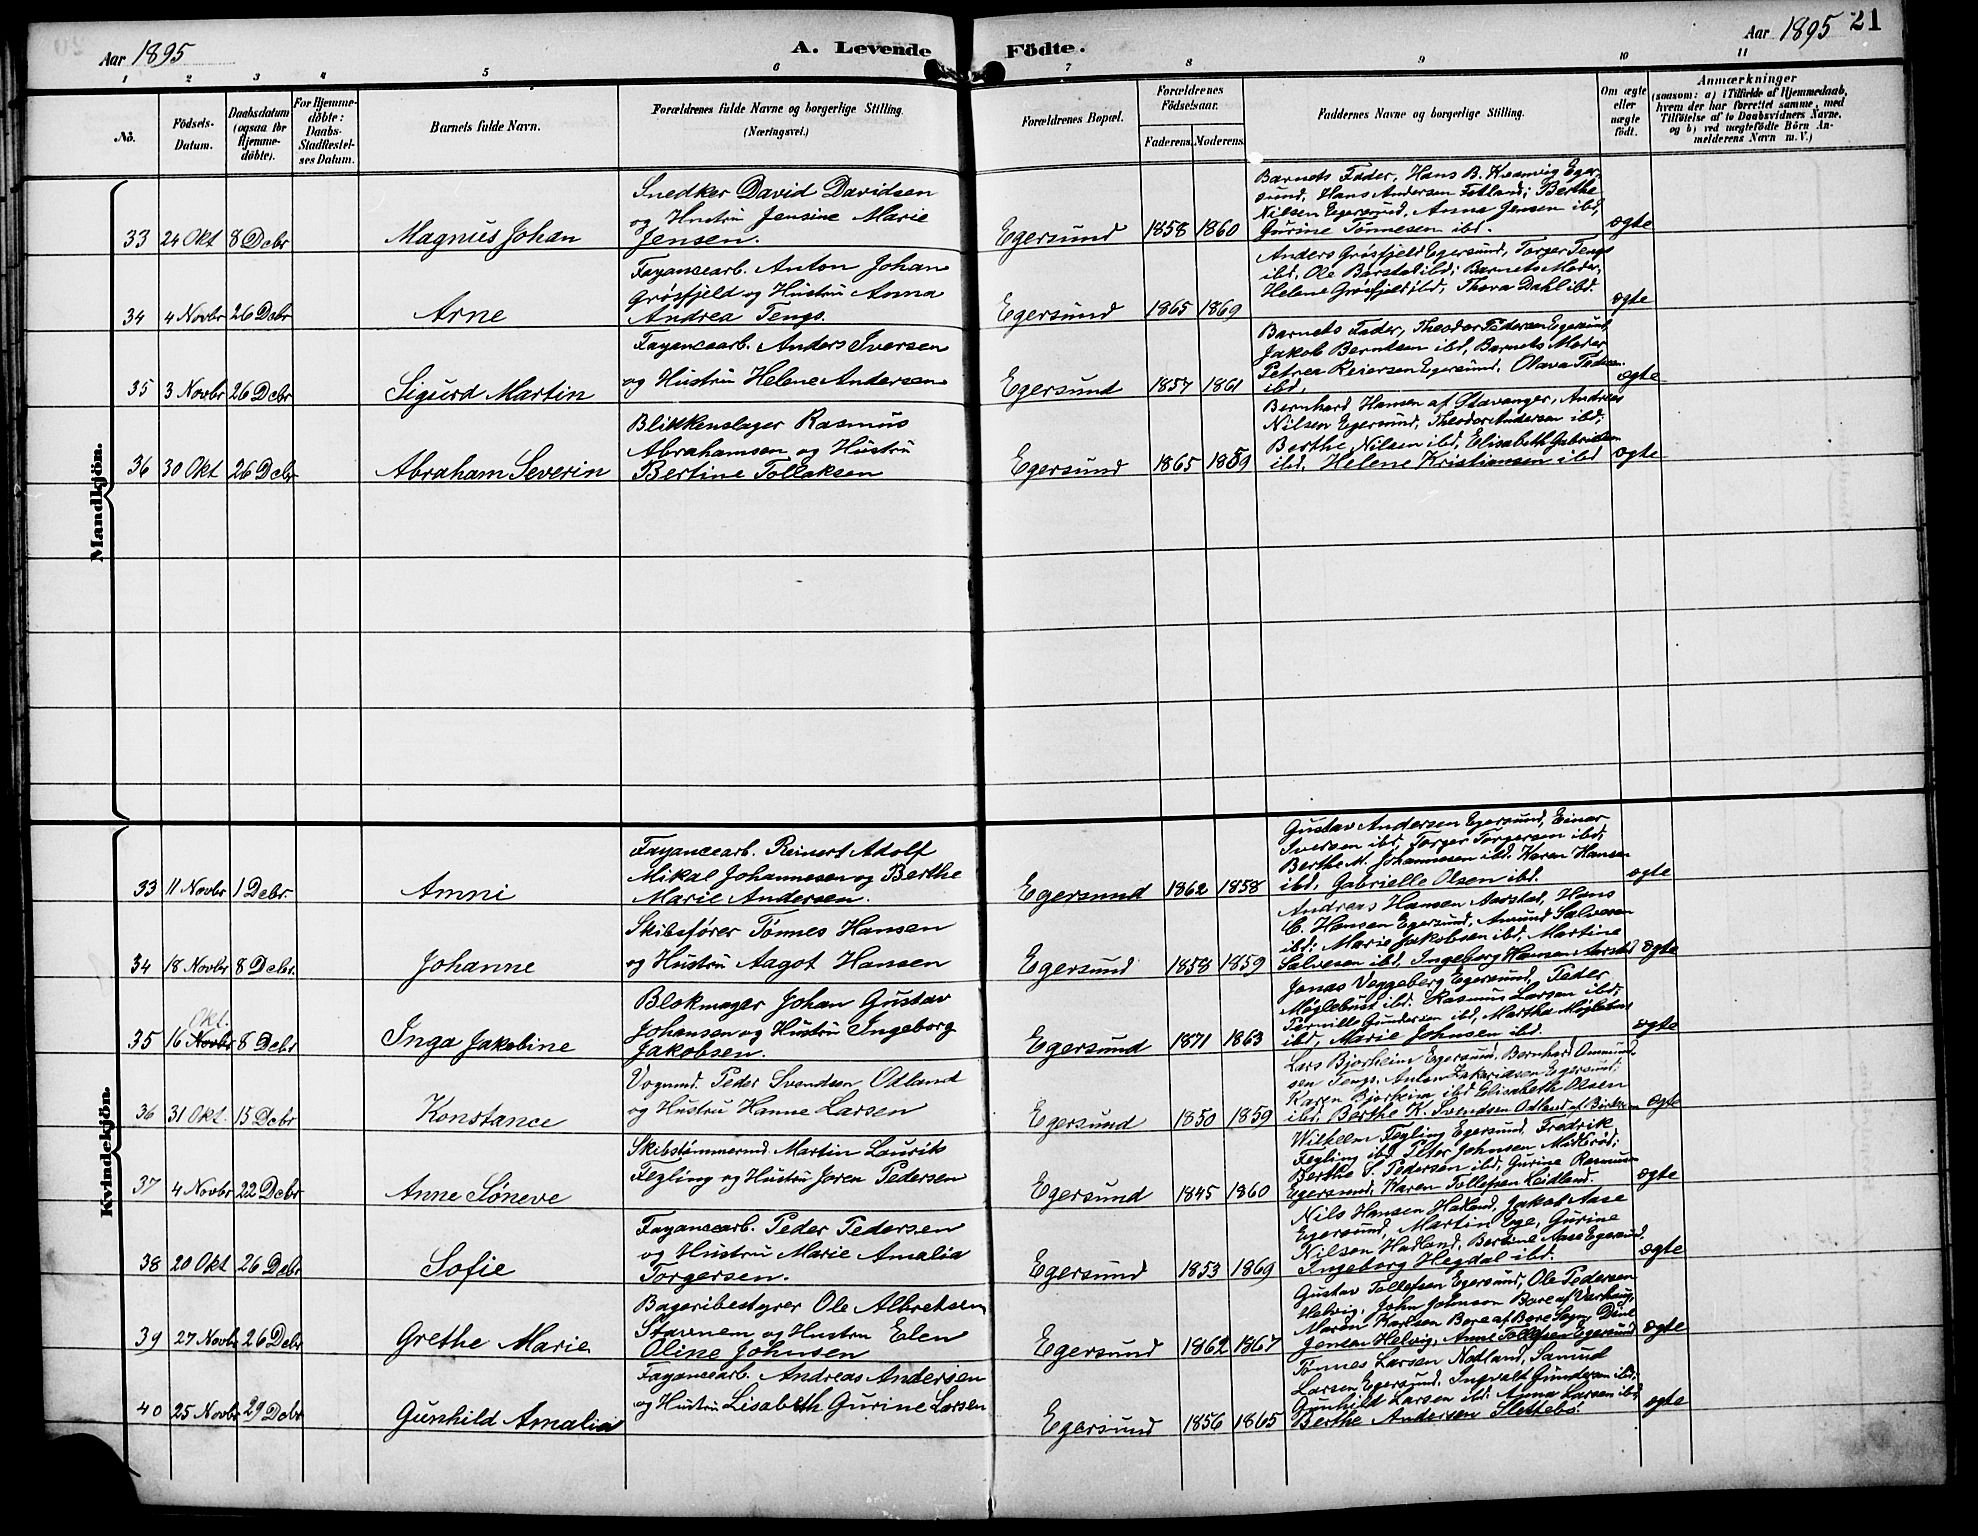 Aar 1895
A. Levende Födte.
Aar 1895 21
1 2 3 4 5 6 7 8 9 10 11
No.
Födsels-
Datum.
Daabsdatum
(ogsaa for
Hjemme-
döbte).
For Hjemme-
döbte:
Daabs-
Stadfæstel-
ses Datum.
Barnets fulde Navn.
Forældrenes fulde Navne og borgerlige Stilling.
(Næringsvei.)
Forældrenes Bopæl.
Forældrenes
Födselsaar.
Faderens. Moderens.
Faddernes Navne og borgerlige Stilling.
Om ægte
eller
uægte
født.
Anmærkninger
(saasom: a) i Tilfælde af Hjemmedaab,
hvem der har forrettet samme, med
Tilføielse af to Daabsvidners Navne,
og b) ved uægtefødte Börn An-
melderens Navn m. V.)
Mandkjön.
33 24 Okt 8 Decbr Magnus Johan
Snedker David Davidsen
og Hustru Jensine Marie
Jensen.
Egersund 1858 1860
Barnets Fader, Hans B. Eger-
sund, Hans Andersen Fotland; Berthe
Nilsen Egersund, Anna Jensen ibd,
Gurine Tønnesen ibd.
ægte
34 4 Novbr 26 Decbr Arne
Fayancearb. Anton Johan
Grøsfjeld og Hustru Anna
Andrea Tengs.
Egersund 1865 1869
Anders Grøsfjeld Egersund, Torger Tengs
ibd, Ole Barstad ibd; Barnets Moder,
Helene Grøsfjeld ibd, Thora Dahl ibd.
ægte
35 3 Novbr 26 Decbr Sigurd Martin
Fayancearb. Anders Iversen
og Hustru Helene Andersen
Egersund 1857 1861
Barnets Fader, Theodor Pedersen Egersund,
Jakob Berntsen ibd, Barnets Moder
Petrea Reiersen Egersund, Olava Pedersen
ibd.
ægte
36 30 Okt 26 Decbr Abraham Severin
Blikkenslager Rasmus
Abrahamsen og Hustru
Bertine Tollaksen
Egersund 1865 1859
Bernhard Hansen af Stavanger, Andreas
Nilsen Egersund, Theodor Andersen ibd;
Berthe Nilsen ibd, Elisabeth Gabrielsen
ibd, Helene Kristiansen ibd
ægte
Kvindekjön.
33 11 Novbr 1 Decbr. Amni
Fayancearb. Reinert Adolf
Mikal Johannesen og Berthe
Marie Andersen.
Egersund 1862 1858
Gustav Andersen Egersund, Einar
Iversen ibd, Torger Torgersen ibd,
Berthe M. Johannesen ibd. Karen Hansen
ibd, Gabrielle Olsen ibd.
ægte
34 18 Novbr 8 Decbr. Johanne
Skibsfører Tønnes Hansen
og Hustru Aagot Hansen
Egersund 1858 1859
Andreas Hansen Aarstad, Hans
C. Hansen Egersund, Amund Salvesen
ibd; Marie Jakobsen ibd, Martine
Salvesen ibd, Ingeborg Hansen Aarstad
ægte
Okt.
35 16 Novbr 8 Decbr Inga Jakobine
Blokmager Johan Gustav
Johansen og Hustru Ingeborg
Jakobsen.
Egersund 1871 1863
Jonas Veggeberg Egersund, Peder
Møglebust ibd. Rasmus Larsen ibd;
Pernille Gundersen ibd, Martha Møglebust
ibd, Marie Johnsen ibd.
ægte
36 31 Okt. 15 Decbr Konstance
Vognmd. Peder Svendsen Odland
og Hustru Hanne Larsen
Egersund 1850 1859
Lars Bjorheim Egersund, Bernhard Ommund-
sen Tengs, Anton Zakariasen Egersund;
Karen Bjorheim ibd Elisabeth Olsen
ibd, Berthe K. Svendsen Odland af
ægte
37 4 Novbr 22 Decbr Anne Søneve
Skibstømmermd. Martin Laurits
Fegling og Hustru Joren Pedersen
Egersund 1845 1860
Wilhelm Fegling Egersund, Fredrik
Fegling ibd, Peter Johnsen Midbrød;
Berthe S. Pedersen ibd, Gurine Rasmussen
Egersund, Karen Tollefsen Leidland.
ægte
38 20 Okt 26 Decbr Sofie
Fayancearb. Peder Pedersen
og Hustru Marie Amalia
Torgersen.
Egersund 1853 1869
Nils Hansen Hadland, Jakob Aase
Egersund, Martin Ege, Gurine
Nilsen Hadland, Bertine Aase Egersund,
Ingeborg Hegdal ibd.
ægte
39 27 Novbr 26 Decbr Grethe Marie
Bageribestyrer Ole Albretsen
Stavnem og Hustru Elen
Oline Johnsen
Egersund 1862 1867
Gustav Tollefsen Egersund, Ole Pedersen
Helvig, John Johnson Bore af Varhaug,
Maren Karlsen Bore af Bore Sogn,
Jensen Helvig, Anne Tollefsen Egersund
ægte
40 25 Novbr 29 Decbr Gunhild Amalia
Fayancearb. Andreas Andersen
og Hustru Lisabeth Gurine Larsen
Egersund 1856 1865
Tønnes Larsen Nodland, Samuel
Larsen Egersund, Ingvald Gundersen ibd;
Gunhild Larsen ibd. Anna Larsen ibd,
Berthe Andersen Slettebø
ægte